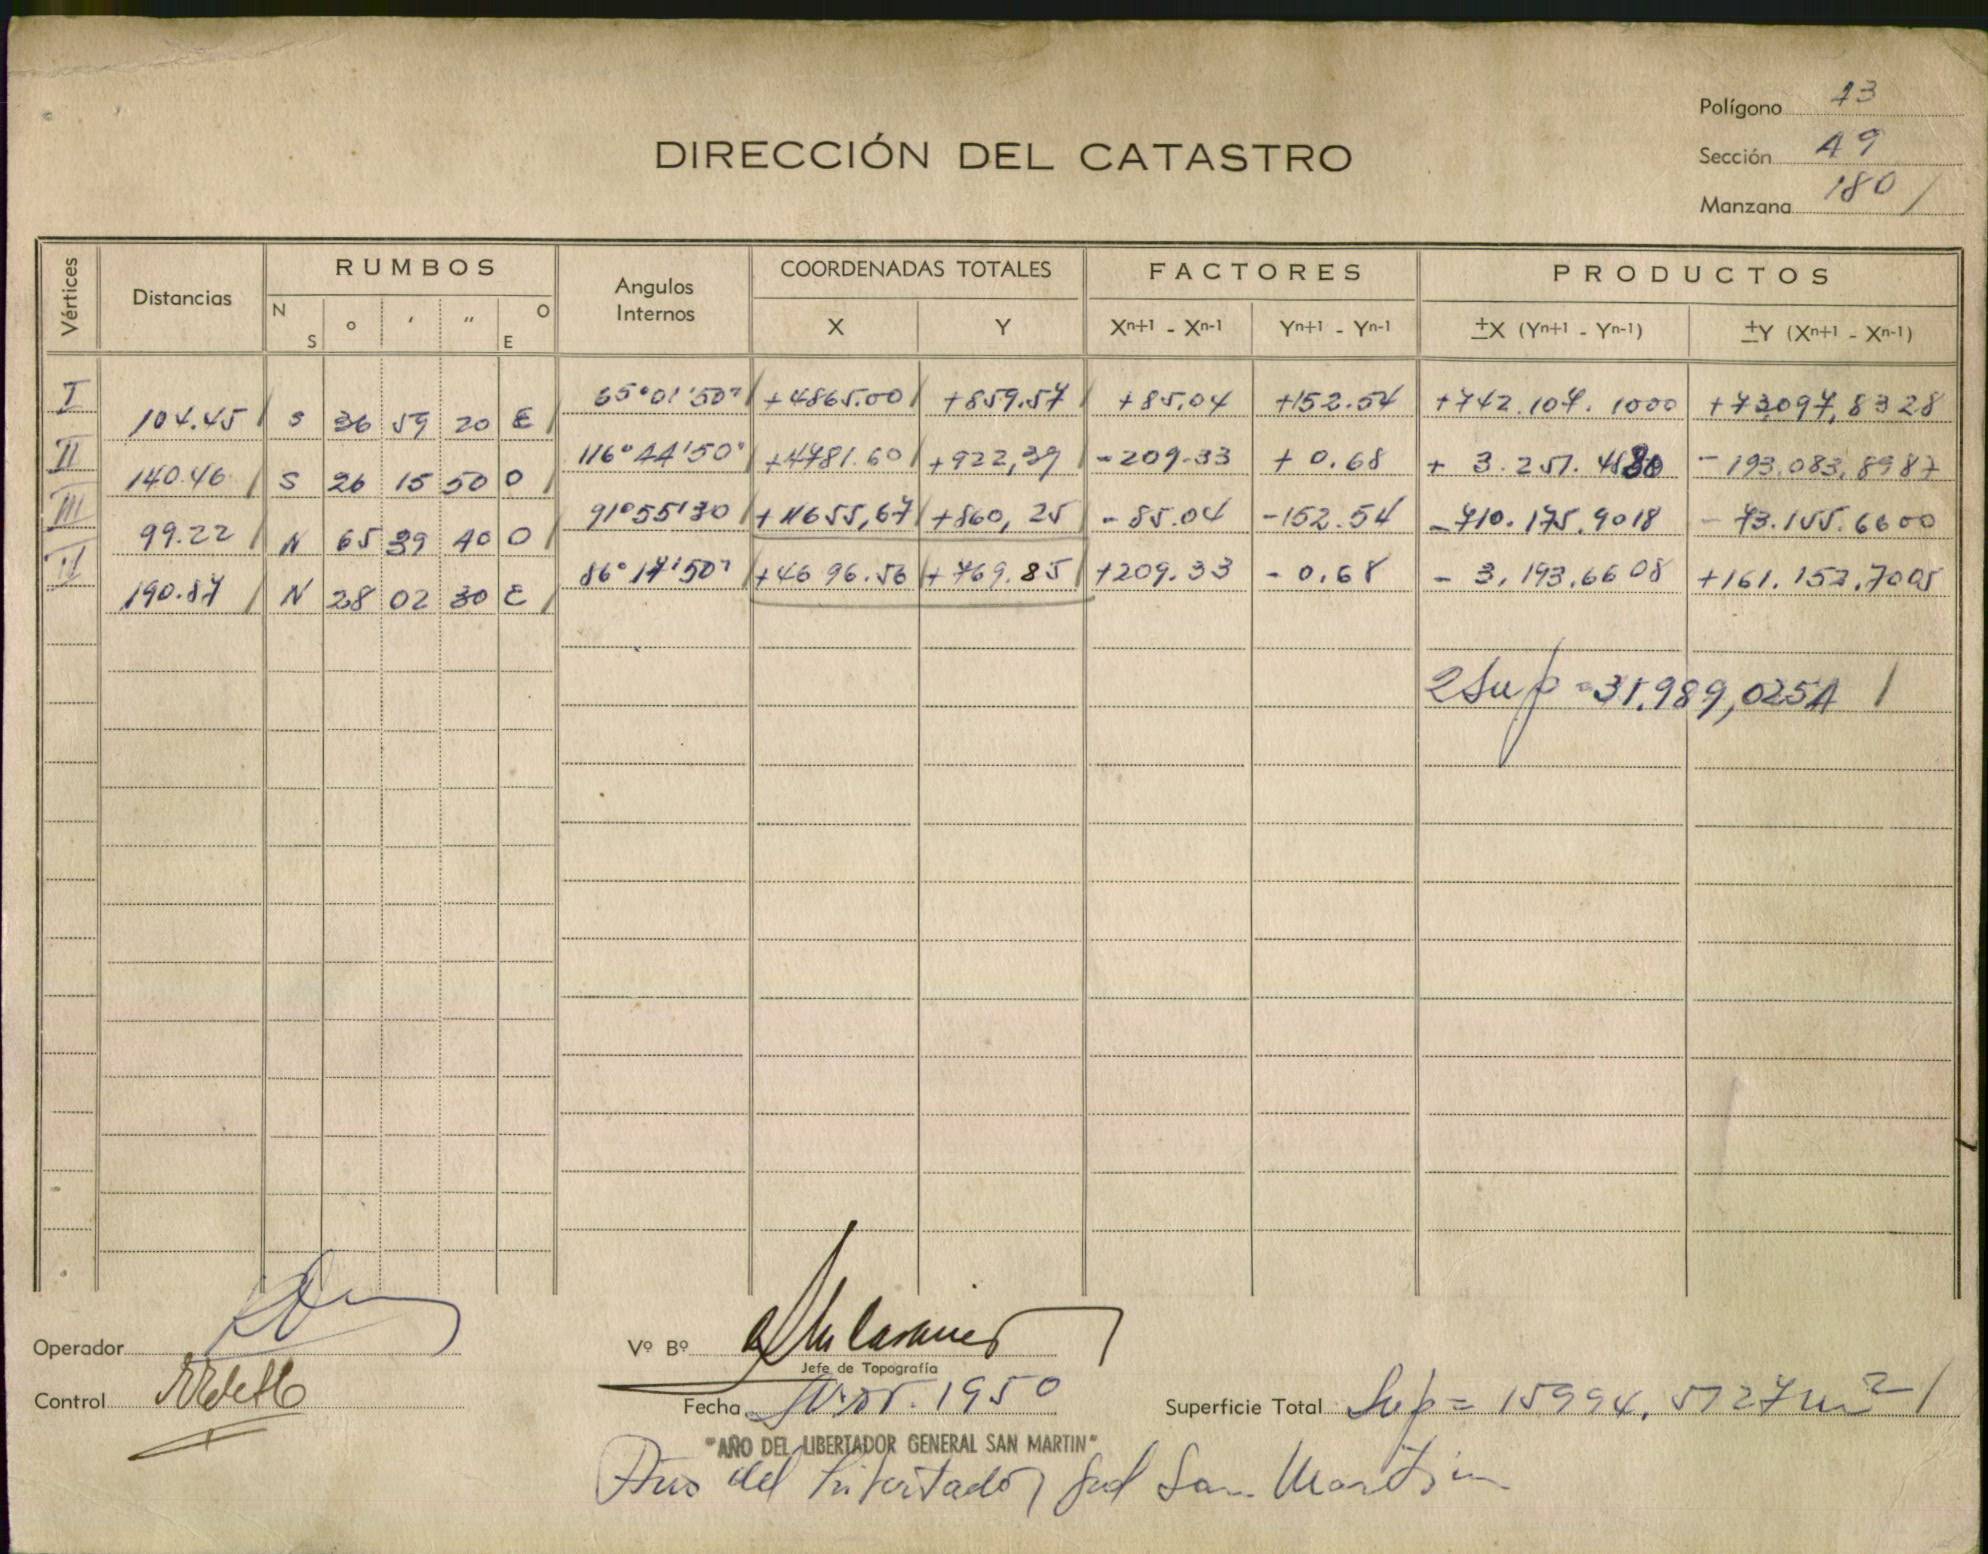 Polígono 13
DIRECCIÓN DEL CATASTRO
Sección 49
Manzana 180 /
Vértices Distancias RUMBOS Angulos Internos COORDENADAS TOTALES FACTORES PRODUCTOS
N S ° ' " O E X Y Xn+1 - Xn-1 Yn+1 - Yn-1 ±X (Yn+1 - Yn-1) ±Y (Xn+1 - Xn-1)
I 65°01'50" +4865.00 +859.57 +85.04 +152.54 +742.107.1000 +73097,8328
104.45 S 36 59 20 E
II 116°44'50" +4781.60 +922,39 -209.33 +0.68 +3.251.4880 -193.083,8987
140.46 S 26 15 50 O
III 91°55'30 +4655,67 +860,25 -85.04 -152.54 -710.175.9018 -73.155.6600
99.22 N 65 39 40 O
IV 86°17'50" +4696.56 +769.85 +209.33 -0.68 -3,193.6608 +161.152.7005
190.87 N 28 02 30 E
2Sup = 31.989,0254 /
Operador
Vº Bº
Jefe de Topografía
Control
Fecha Nov. 1950
Superficie Total Sup = 15994.5127 m2 /
"AÑO DEL LIBERTADOR GENERAL SAN MARTIN"
Año del Libertador Gral San Martin